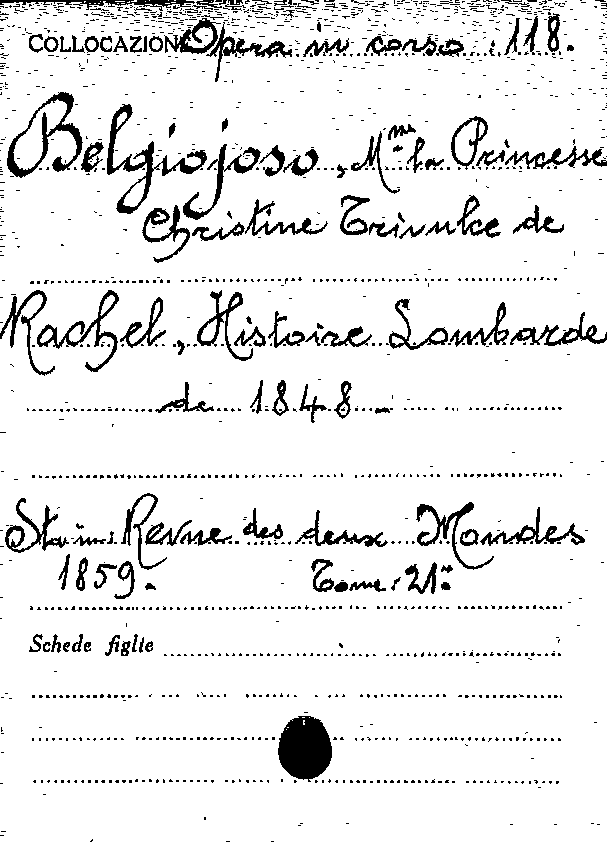 COLLOCAZIONE Opera in corso. 118.
Belgiojoso, Mme la Princesse
Christine Trivulce de
Rachel, Histoire Lombarde
de 1848 -
Sta in: Revue des deux Mondes
1859. Tome 21º
Schede figlie